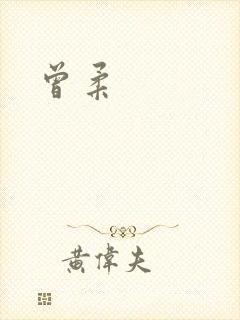 曾柔
黄偉夫